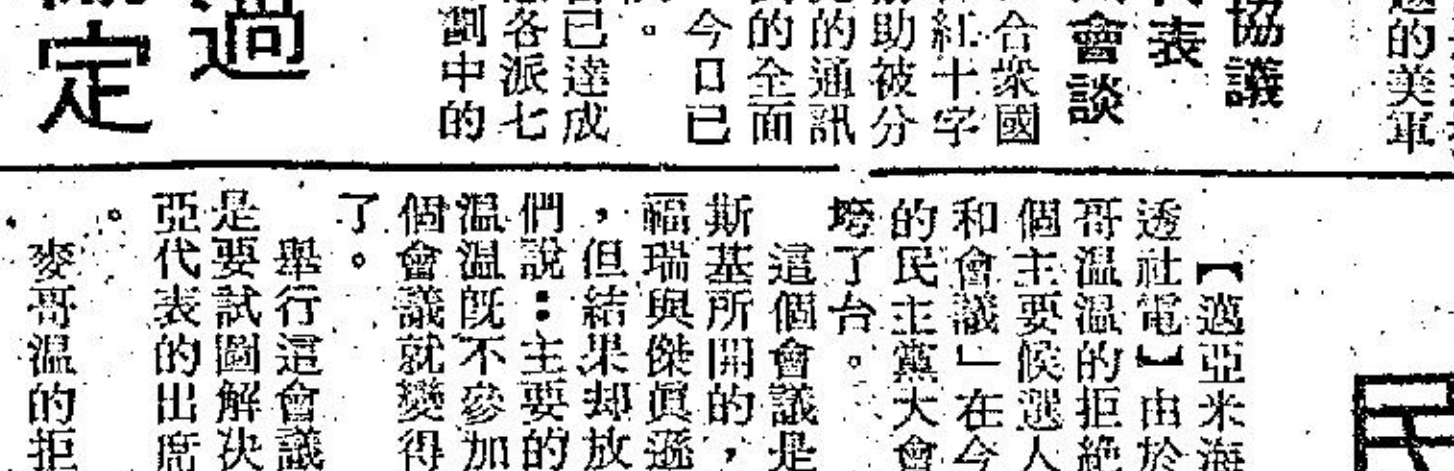 的美軍
協議
表
會談
合衆國
紅十字
助被分
的通訊
的全面
今日已
。
已達成
各派七
劃中的
過
定
民
【邁亞米海
透社電】由於
哥溫溫的拒絕
個主要候選人
和會議」在今
的民主黨大會
垮了台。
這個會議是
斯基所開的，
福瑞與傑眞遜
，但結果却放
們說：主要的
溫溫旣不參加
個會議就變得
了。
舉行這會議
是要試圖解决
亞代表的出席
。
麥哥溫的拒